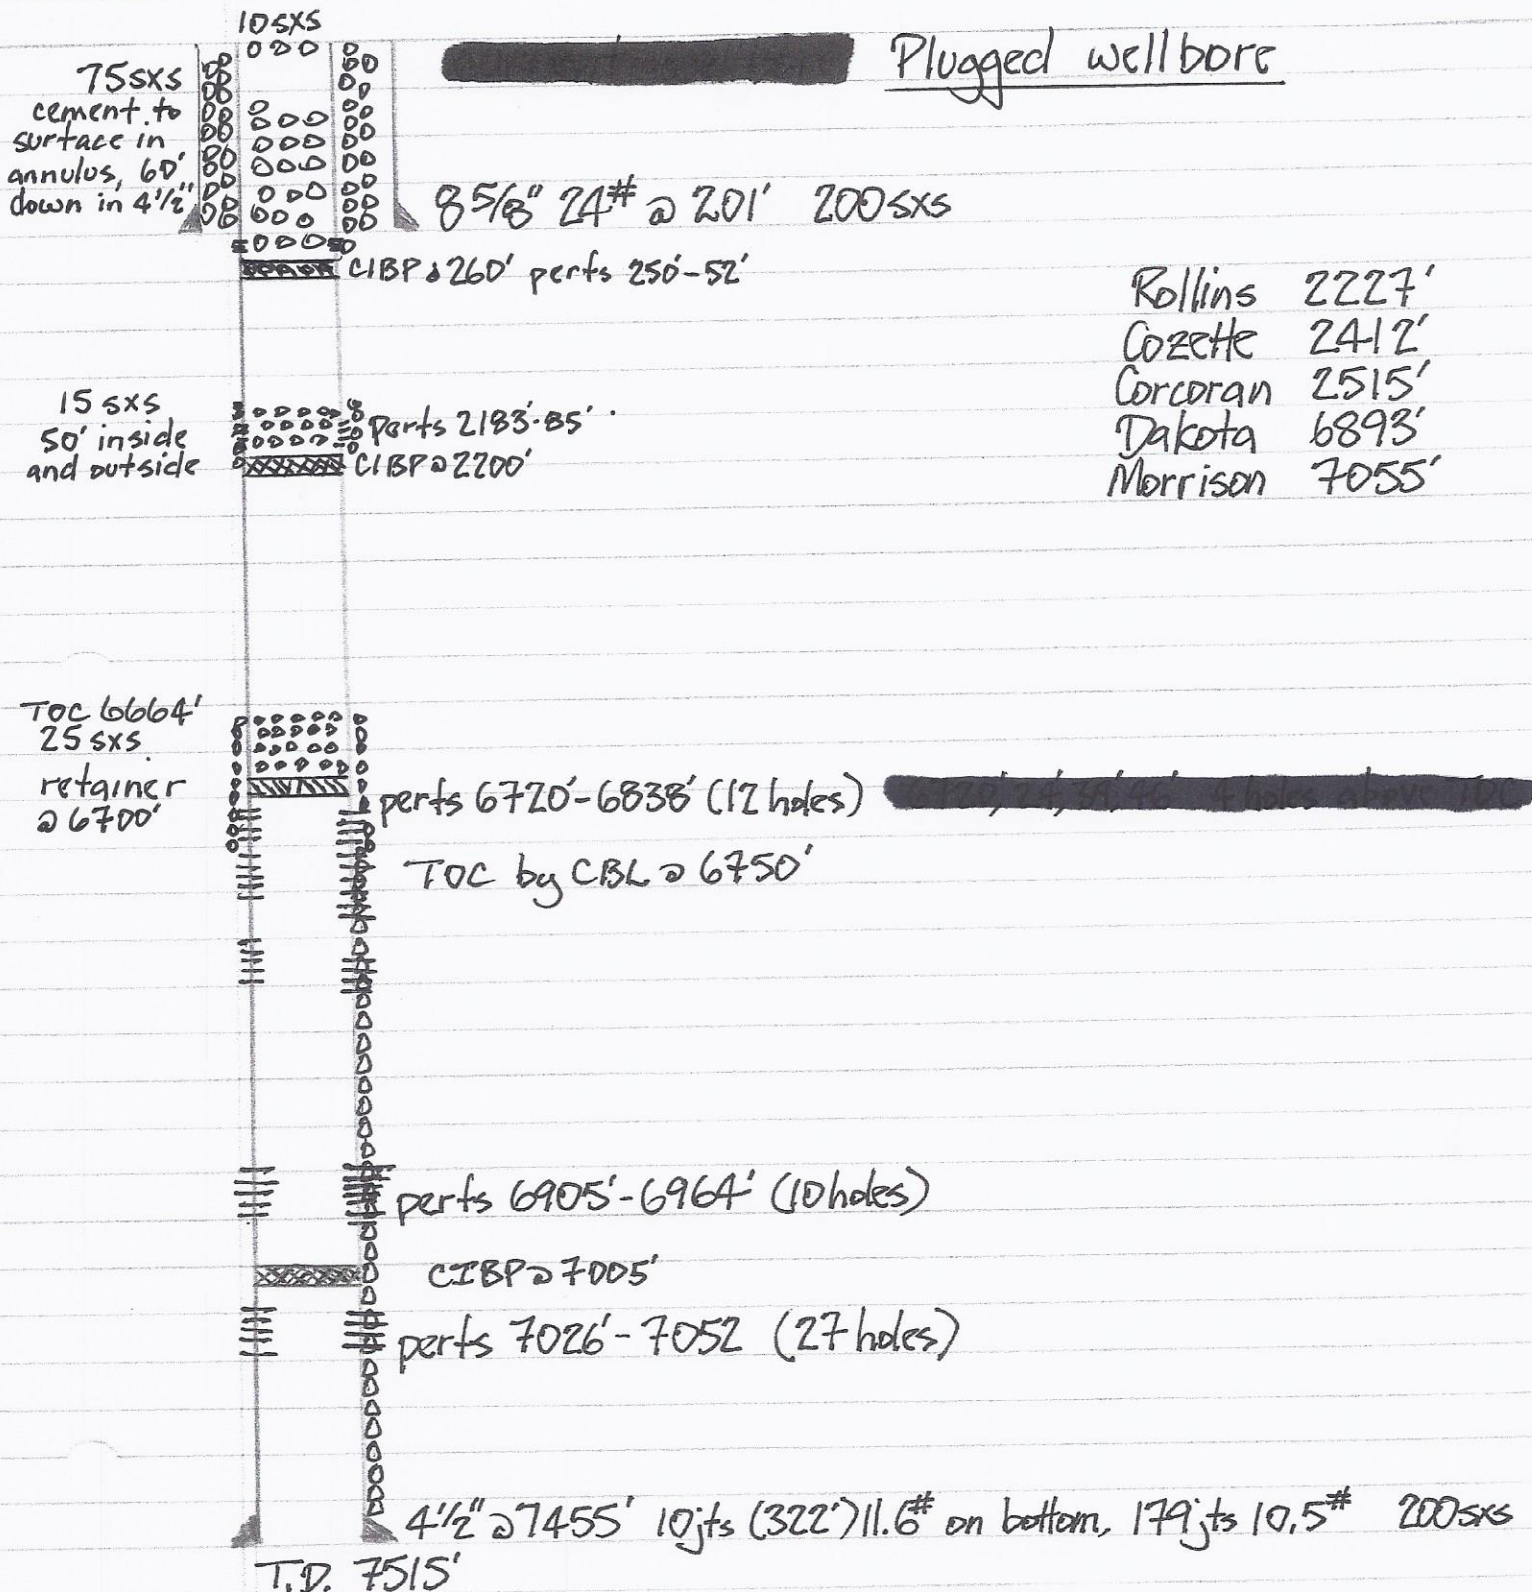 10 sxs
Plugged wellbore
75 sxs
cement to
surface in
annulus, 60'
down in 4 1/2"
8 5/8" 24# @ 201' 200 sxs
CIBP @ 260' perfs 250'-52'
Rollins 2227'
Cozette 2412'
Corcoran 2515'
Dakota 6893'
Morrison 7055'
15 sxs
50' inside
and outside
perfs 2183'-85'
CIBP @ 2200'
TOC 6664'
25 sxs
retainer
@ 6700'
perfs 6720'-6838' (12 holes)
TOC by CBL @ 6750'
perfs 6905'-6964' (10 holes)
CIBP @ 7005'
perfs 7026'-7052 (27 holes)
4 1/2" @ 7455' 10 jts (322') 11.6# on bottom, 179 jts 10.5# 200 sxs
T.D. 7515'